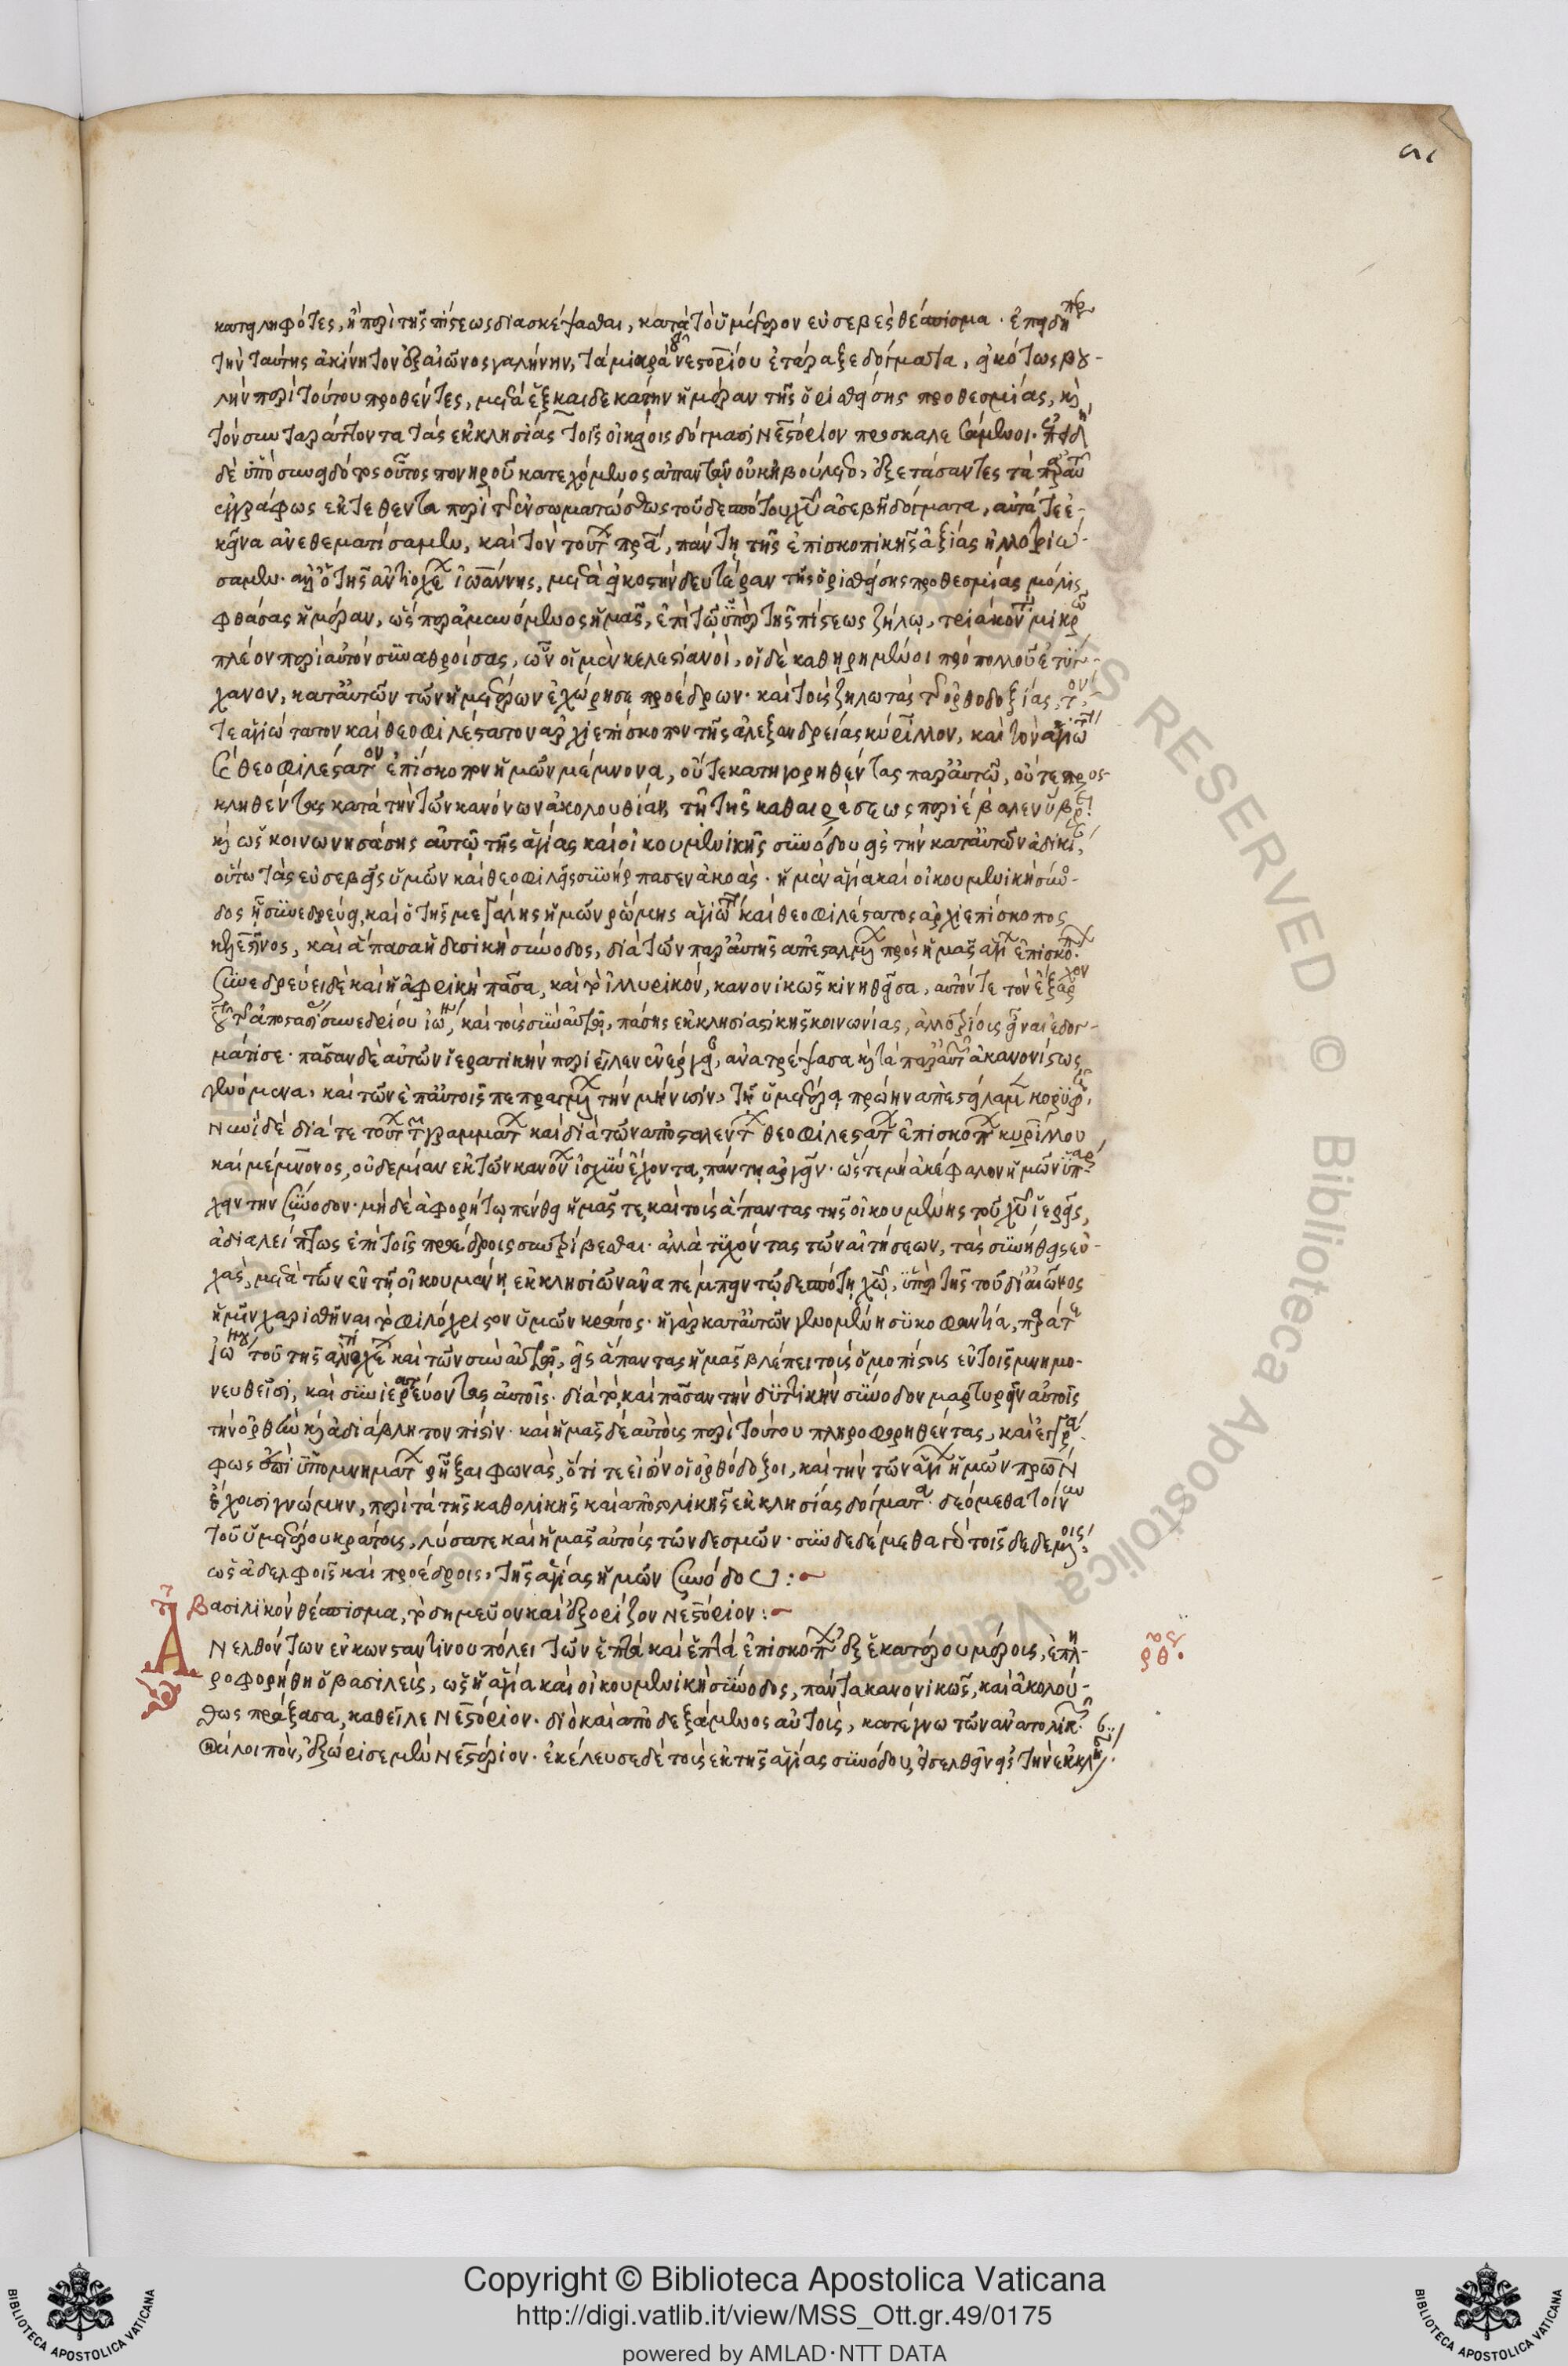 καταληφότες, ἢ περὶ τῆς πίστεως διασκέψασθαι, κατὰ τὸ ὑμέτερον εὐσεβὲς θέσπισμα. ἐπειδήπερ
τὴν ταύτης ἀκίνητον ἐξ αἰῶνος γαλήνην, τὰ μιαρὰ νεστορίου ἐτάραξε δόγματα, εἰκότως βου-
λὴν περὶ τούτου προθέντες, μετὰ ἑξκαιδεκάτην ἡμέραν τῆς ὁρισθείσης προθεσμίας, καὶ
τὸν συνταράττοντα τὰς ἐκκλησίας τοῖς οἰκείοις δόγμασι Νεστόριον προσκαλεσάμενοι. ἐπειδὴ
δὲ ὑπὸ συνειδότος οὗτος πονηροῦ κατεχόμενος ἀπαντᾶν οὐκ ἠβούλετο, ἐξετάσαντες τὰ παρ' αὐτοῦ
ἐγγράφως ἐκτεθέντα περὶ τῆς ἐνσωματώσεως τοῦ δεσπότου χυ ἀσεβῆ δόγματα, αὐτά τε ἐ-
κεῖνα ἀνεθεματίσαμεν, καὶ τὸν τούτων πρα, πάντη τῆς ἐπισκοπικῆς ἀξίας ἠλλοτριώ-
σαμεν. ὁ τῆς ἀντιοχείας ἰωάννης, μετὰ εἰκοστὴν δευτέραν τῆς ὁρισθείσης προθεσμίας μόλις
φθάσας ἡμέραν, ὥσπερ ἀμυνόμενος ἡμᾶς, ἐπὶ τῷ ὑπὲρ τῆς πίστεως ζήλῳ, τριάκοντα μικρῷ
πλέον περὶ αὐτὸν συναθροίσας, ὧν οἱ μὲν κελεστιανοὶ, οἱ δὲ καθῃρημένοι πρὸ πολλοῦ ἐτύγ-
χανον, κατ' αὐτῶν τῶν ἡμετέρων ἐχώρησε προέδρων. καὶ τοὺς ζηλωτὰς τῆς ὀρθοδοξίας, τόν
τε ἁγιώτατον καὶ θεοφιλέστατον ἀρχιεπίσκοπον τῆς ἀλεξανδρείας κύριλλον, καὶ τὸν ἁγιώτατον
καὶ θεοφιλέστατον ἐπίσκοπον ἡμῶν μέμνονα, οὔτε κατηγορηθέντας παρ' αὐτῷ, οὔτε προσ-
κληθέντας κατὰ τὴν τῶν κανόνων ἀκολουθίαν, τῇ τῆς καθαιρέσεως περιέβαλεν ὕβρει
καὶ ὡς κοινωνησάσης αὐτῷ τῆς ἁγίας καὶ οἰκουμενικῆς συνόδου εἰς τὴν κατ' αὐτῶν ἀδικίαν,
οὕτω τὰς εὐσεβεῖς ὑμῶν καὶ θεοφιλεῖς συνήρπασεν ἀκοάς. ἡ μὲν ἁγία καὶ οἰκουμενικὴ σύνο-
δος ᾗ συνεδρεύει, καὶ ὁ τῆς μεγάλης ἡμῶν ῥώμης ἁγιώτατος καὶ θεοφιλέστατος ἀρχιεπίσκοπος
κελεστῖνος, καὶ ἅπασα ἡ δυτικὴ σύνοδος, διὰ τῶν παρ' αὐτῆς ἀπεσταλμένων πρὸς ἡμᾶς ἁγίων ἐπισκόπων.
συνεδρεύει δὲ καὶ ἡ ἀφρικὴ πᾶσα, καὶ τὸ ἰλλυρικόν, κανονικῶς κινηθεῖσα, αὐτόν τε τὸν ἔξαρχον
τοῦ τῆς ἀποστασίας συνεδρίου ἰωάννην, καὶ τοὺς σὺν αὐτῷ, πάσης ἐκκλησιαστικῆς κοινωνίας, ἀλλοτρίους εἶναι ἐδογ-
μάτισε. πᾶσαν δὲ αὐτῶν ἱερατικὴν περιεῖλεν ἐνέργειαν, ἀνατρέψασα καὶ τὰ παρ' αὐτῶν ἀκανονίστως
γενόμενα, καὶ τῶν ἐπ' αὐτοῖς πεπραγμένων τὴν μήνυσιν, τῇ ὑμετέρᾳ πρώην ἀπεστείλαμεν κορυφῇ,
Νυνὶ δὲ διά τε τούτων τῶν γραμμάτων καὶ διὰ τῶν ἀποσταλέντων θεοφιλεστάτων ἐπισκόπων κυρίλλου
καὶ μέμνονος, οὐδεμίαν ἐκ τῶν κανόνων ἰσχὺν ἔχοντα, πάντη ἀργεῖν. ὥστε μὴ ἀκέφαλον ἡμῶν ὑπάρ-
χειν τὴν σύνοδον. μηδὲ ἀφορήτῳ πένθει ἡμᾶς τε, καὶ τοὺς ἅπαντας τῆς οἰκουμένης τοῦ χυ ἱερεῖς,
ἀδιαλείπτως ἐπὶ τοῖς προέδροις συντρίβεσθαι. ἀλλὰ τυχόντας τῶν αἰτήσεων, τὰς συνήθεις εὐ-
χὰς, μετὰ τῶν ἐν τῇ οἰκουμένῃ ἐκκλησιῶν ἀναπέμπειν τῷ δεσπότῃ χω, ὑπὲρ τῆς τοῦ δι' αἰῶνος
ἡμῖν χαρισθῆναι τὸ φιλόχριστον ὑμῶν κράτος. ἡ γὰρ κατ' αὐτῶν γενομένη συκοφαντία, παρά τε
Ἰωάννου τοῦ τῆς ἀντιοχείας καὶ τῶν σὺν αὐτῷ, εἰς ἅπαντας ἡμᾶς βλέπει τοὺς ὁμοπίστους ἐν τοῖς μνημο-
νευθεῖσι, καὶ συνιερατεύοντας αὐτοῖς. διὰ τὸ, καὶ πᾶσαν τὴν δυτικὴν σύνοδον μαρτυρεῖν αὐτοῖς
τὴν ὀρθὴν καὶ ἀδιάβλητον πίστιν. καὶ ἡμᾶς δὲ αὐτοὺς περὶ τούτου πληροφορηθέντας, καὶ ἐγγρά-
φως ἐπὶ ὑπομνημάτων ῥῆξαι φωνὰς, ὅτι τε εἰσὶν οἱ ὀρθόδοξοι, καὶ τὴν τῶν ἁγίων ἡμῶν πρων
ἔχουσι γνώμην, περὶ τὰ τῆς καθολικῆς καὶ ἀποστολικῆς ἐκκλησίας δόγματα. δεόμεθα τοίνυν
τοῦ ὑμετέρου κράτους, λύσατε καὶ ἡμᾶς αὐτοὺς τῶν δεσμῶν. συνδεδέμεθα γὰρ τοῖς δεδεμένοις,
ὡς ἀδελφοῖς καὶ προέδροις, τῆς ἁγίας ἡμῶν συνόδου:
βασιλικὸν θέσπισμα, τὸ σημεῦον καὶ ἐξορίζον Νεστόριον:
ΑΝελθόντων ἐν κωνσταντινουπόλει τῶν ἑπτὰ καὶ ἑπτὰ ἐπισκόπων ἐξ ἑκατέρου μέρους, ἐπλη-
ροφορήθη ὁ βασιλεὺς, ὡς ἡ ἁγία καὶ οἰκουμενικὴ σύνοδος, πάντα κανονικῶς, καὶ ἀκολού-
θως πράξασα, καθεῖλε Νεστόριον. διὸ καὶ ἀποδεξάμενος αὐτοὺς, κατέγνω τῶν ἀνατολικῶν.
καὶ λοιπὸν, ἐξώρισε μὲν Νεστόριον. ἐκέλευσε δὲ τοὺς ἐκ τῆς ἁγίας συνόδου, εἰσελθεῖν εἰς τὴν ἐκκλησίαν
Copyright © Biblioteca Apostolica Vaticana
http://digi.vatlib.it/view/MSS_Ott.gr.49/0175
powered by AMLAD·NTT DATA